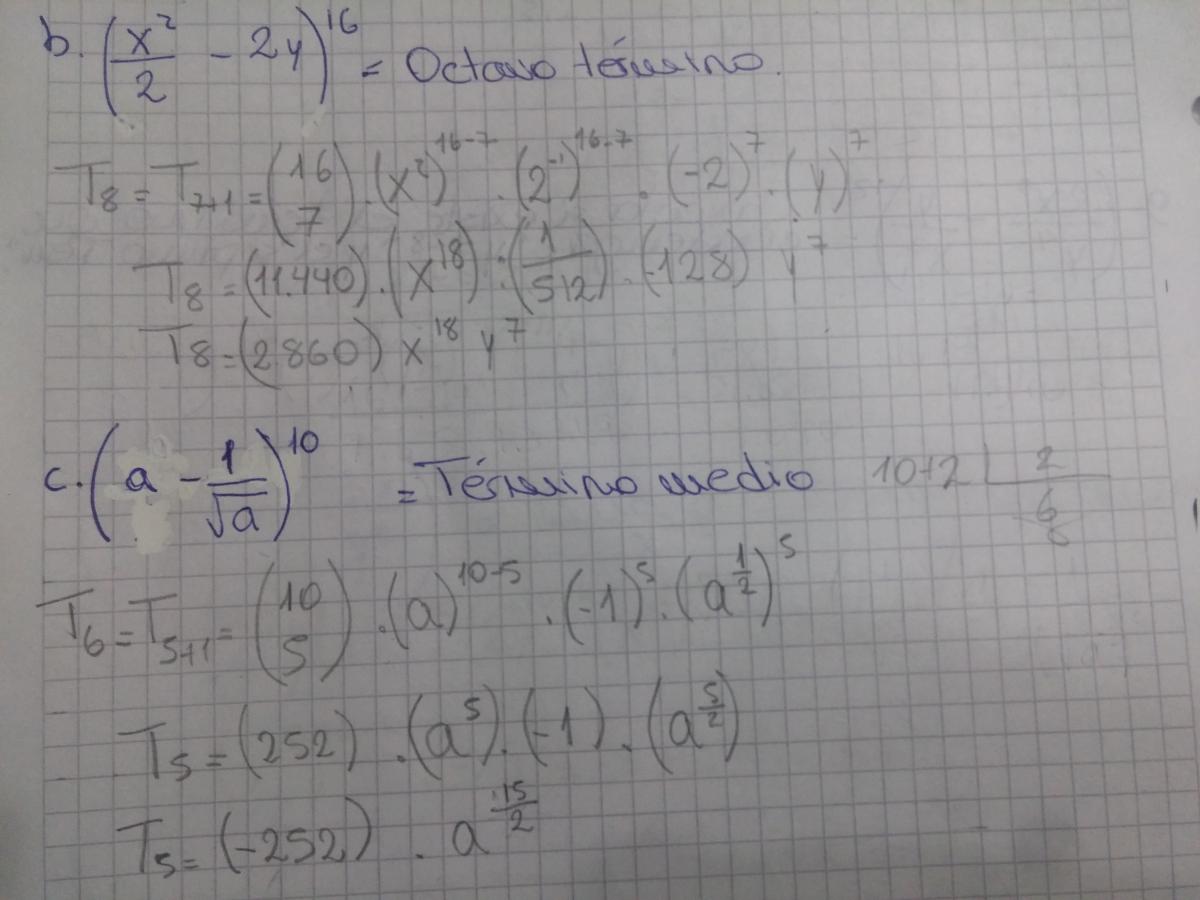 b. (x²/2 - 2y)¹⁶ = Octavo término.
T₈ = T₇₊₁ = (16 7) . (x²)¹⁶⁻⁷ . (2⁻¹)¹⁶⁻⁷ . (-2)⁷ . (y)⁷
T₈ = (11.440) . (x¹⁸) . (1/512) . (-128) y⁷
T₈ = (2.860) x¹⁸ y⁷
c. (a - 1/√a)¹⁰ = Término medio 10+2 | 2
6
T₆ = T₅₊₁ = (10 5) . (a)¹⁰⁻⁵ . (-1)⁵ . (a^(1/2))⁵
T₅ = (252) . (a⁵) . (-1) . (a^(5/2))
T₅ = (-252) . a^(15/2)